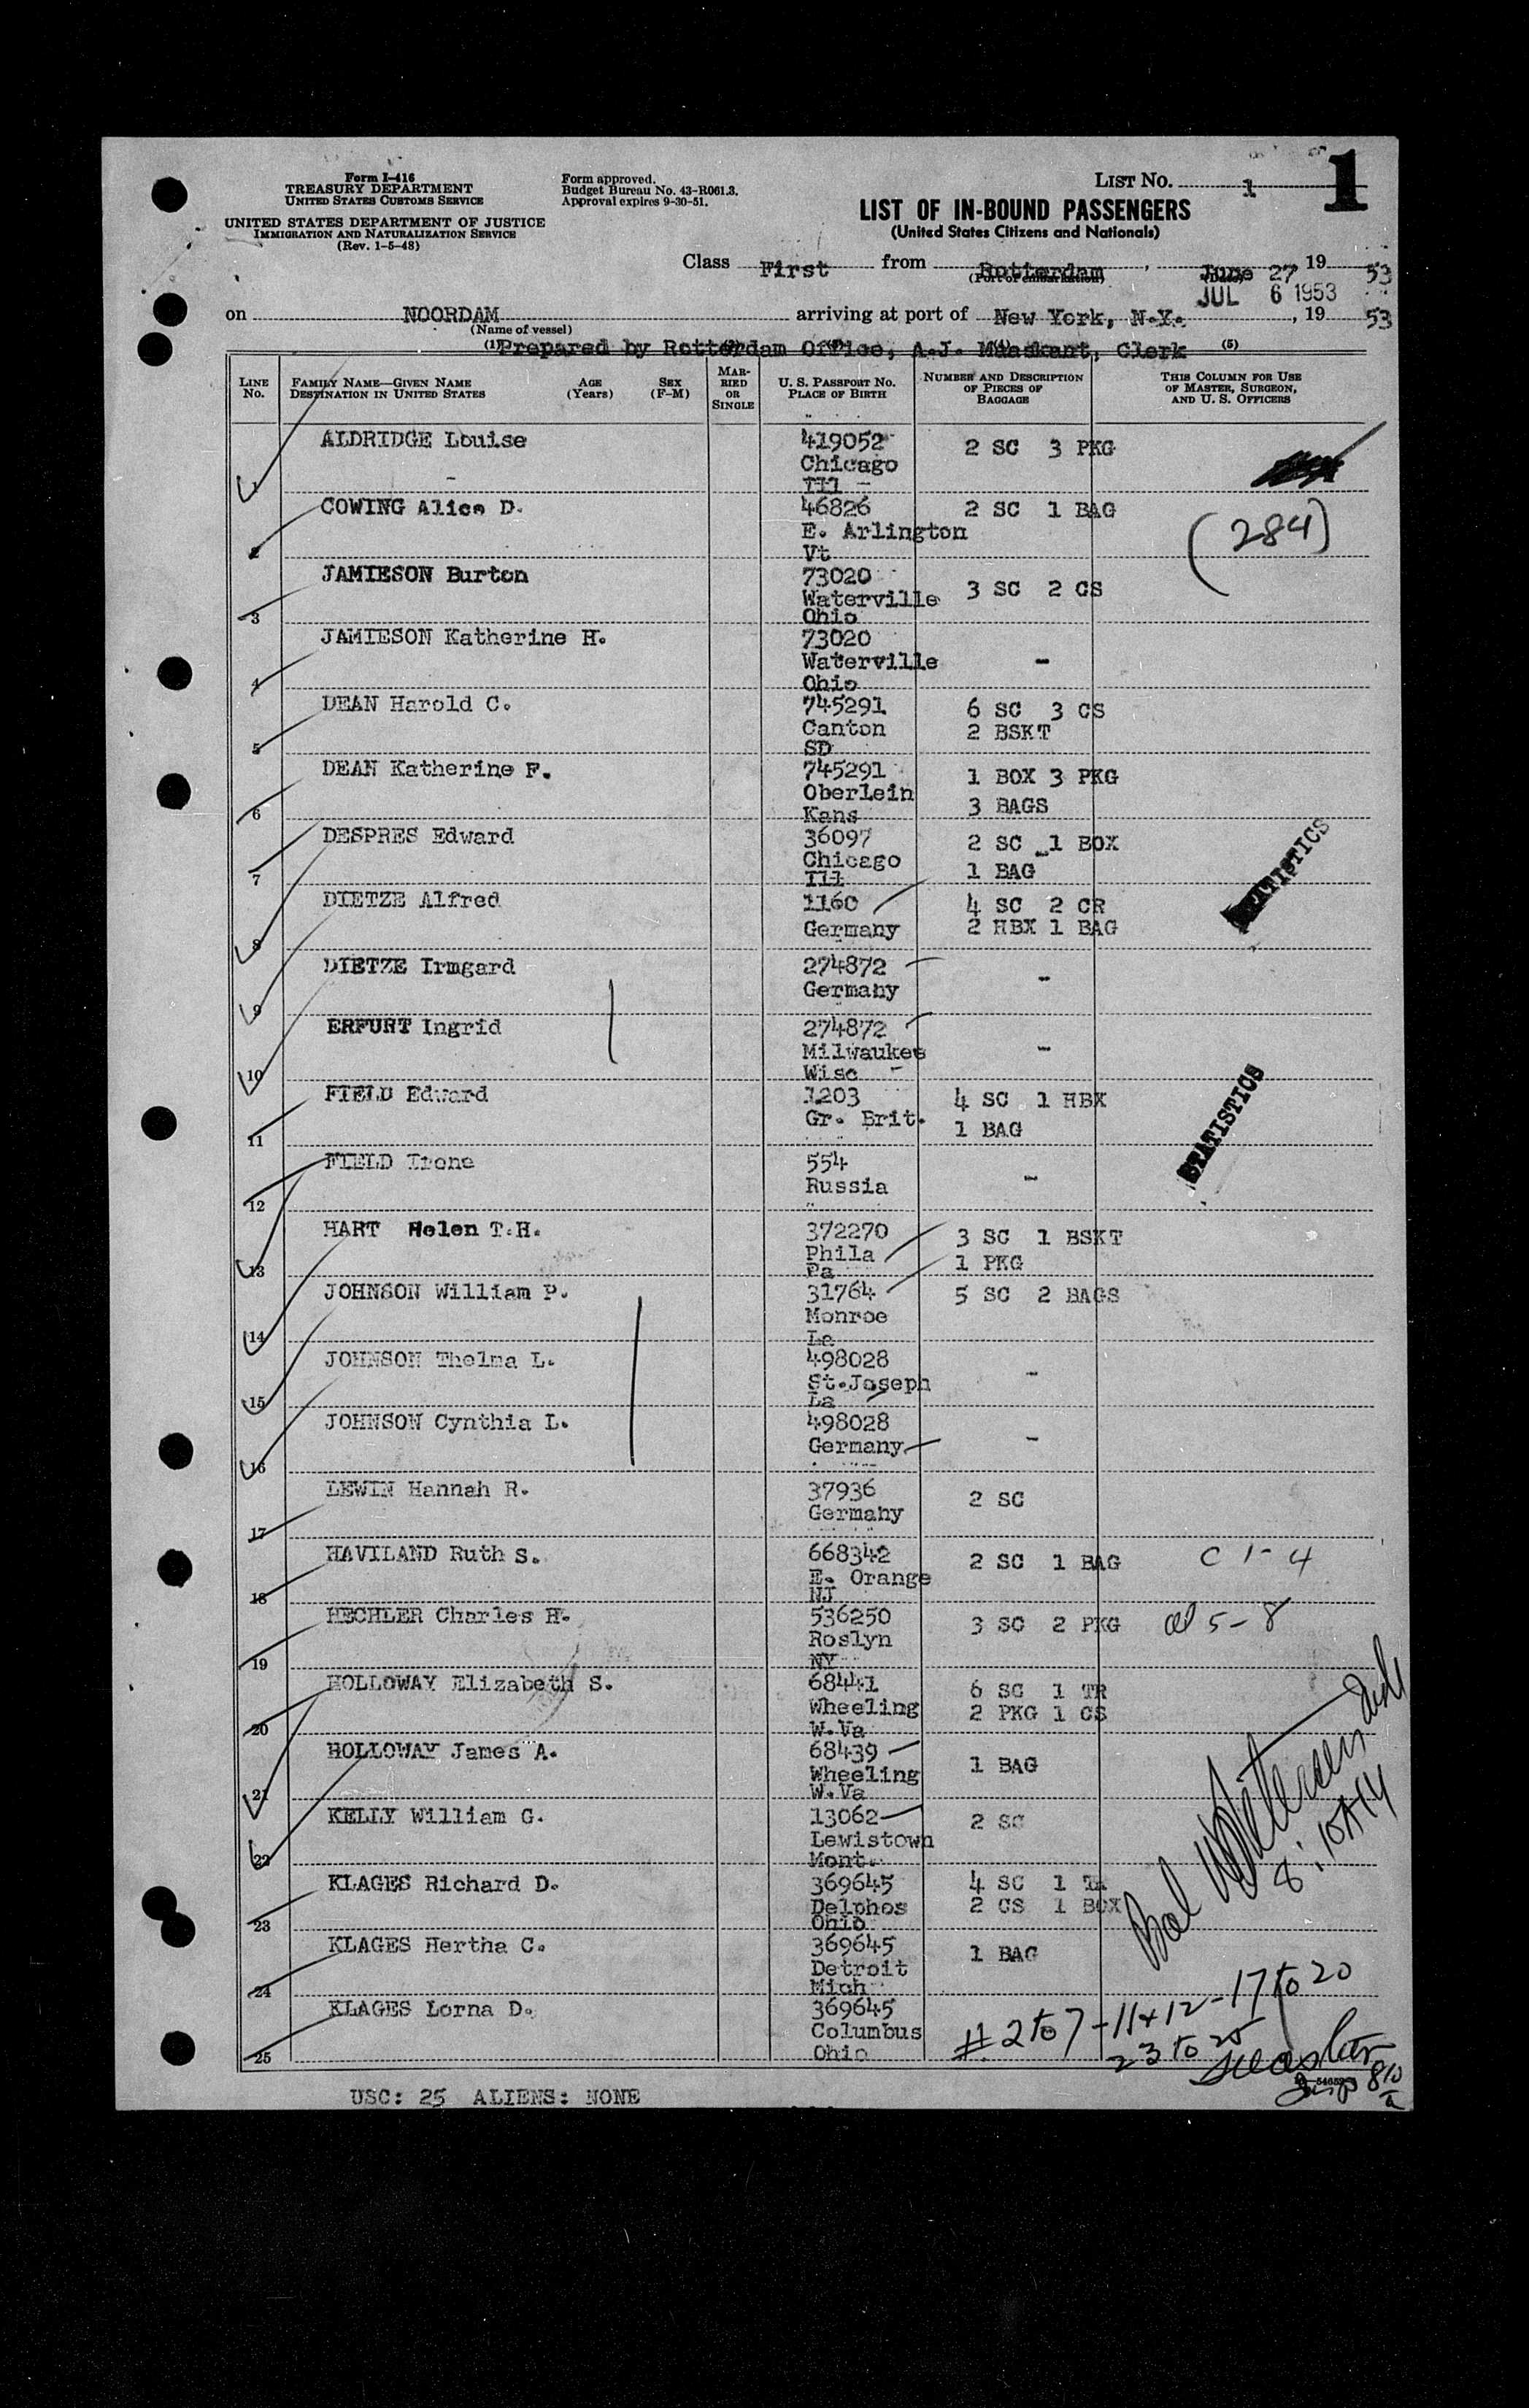 Form I-416
TREASURY DEPARTMENT
UNITED STATES CUSTOMS SERVICE
UNITED STATES DEPARTMENT OF JUSTICE
IMMIGRATION AND NATURALIZATION SERVICE
(Rev. 1-5-48)
Form approved.
Budget Bureau No. 43-R061.3.
Approval expires 9-30-51.
LIST NO. 1
1
LIST OF IN-BOUND PASSENGERS
(United States Citizens and Nationals)
Class First from Rotterdam, June 27, 1953
(Port of embarkation) (Date)
JUL 6 1953
on NOORDAM arriving at port of New York, N.Y., 1953
(Name of vessel)
(1) Prepared by Rotterdam Office, A.J. Maaskant, Clerk (5)
LINE NO. FAMILY NAME—GIVEN NAME DESTINATION IN UNITED STATES AGE (Years) SEX (F-M) MARRIED OR SINGLE U. S. PASSPORT NO. PLACE OF BIRTH NUMBER AND DESCRIPTION OF PIECES OF BAGGAGE THIS COLUMN FOR USE OF MASTER, SURGEON, AND U. S. OFFICERS
ALDRIDGE Louise 419052 2 SC 3 PKG
Chicago
1 - Ill -
COWING Alice D. 46826 2 SC 1 BAG (284)
E. Arlington
2 Vt
JAMIESON Burton 73020 3 SC 2 CS
Waterville
3 Ohio
JAMIESON Katherine H. 73020
Waterville -
4 Ohio
DEAN Harold C. 745291 6 SC 3 CS
Canton 2 BSKT
5 SD
DEAN Katherine F. 745291 1 BOX 3 PKG
Oberlein
6 Kans 3 BAGS
DESPRES Edward 36097 2 SC 1 BOX
Chicago
7 Ill 1 BAG
DIETZE Alfred 1160 4 SC 2 CR
8 Germany 2 HBX 1 BAG
STATISTICS
DIETZE Irmgard 274872 -
9 Germany
ERFURT Ingrid 274872
Milwaukee -
10 Wisc -
FIELD Edward 1203 4 SC 1 HBX
11 Gr. Brit. 1 BAG
STATISTICS
FIELD Irene 554
12 Russia -
HART Helen T.H. 372270 3 SC 1 BSKT
Phila
13 Pa 1 PKG
JOHNSON William P. 31764 5 SC 2 BAGS
Monroe
14 La
JOHNSON Thelma L. 498028
St.Joseph -
15 La
JOHNSON Cynthia L. 498028
16 Germany -
LEWIN Hannah R. 37936 2 SC
17 Germany
HAVILAND Ruth S. 668342 2 SC 1 BAG C 1-4
E. Orange
18 NJ
HECHLER Charles H. 536250 3 SC 2 PKG 5-8
Roslyn
19 NY
HOLLOWAY Elizabeth S. 68441 6 SC 1 TR
Wheeling 2 PKG 1 CS
20 W.Va
HOLLOWAY James A. 68439 1 BAG
Wheeling
21 W.Va
KELLY William G. 13062 2 SC
Lewistown
22 Mont.
KLAGES Richard D. 369645 4 SC 1 TR
Delphos 2 CS 1 BOX
23 Ohio
KLAGES Hertha C. 369645 1 BAG
Detroit
24 Mich
KLAGES Lorna D. 369645
Columbus
25 Ohio
# 2 to 7 - 11 + 12 - 17 to 20
23 to 25
USC: 25 ALIENS: NONE